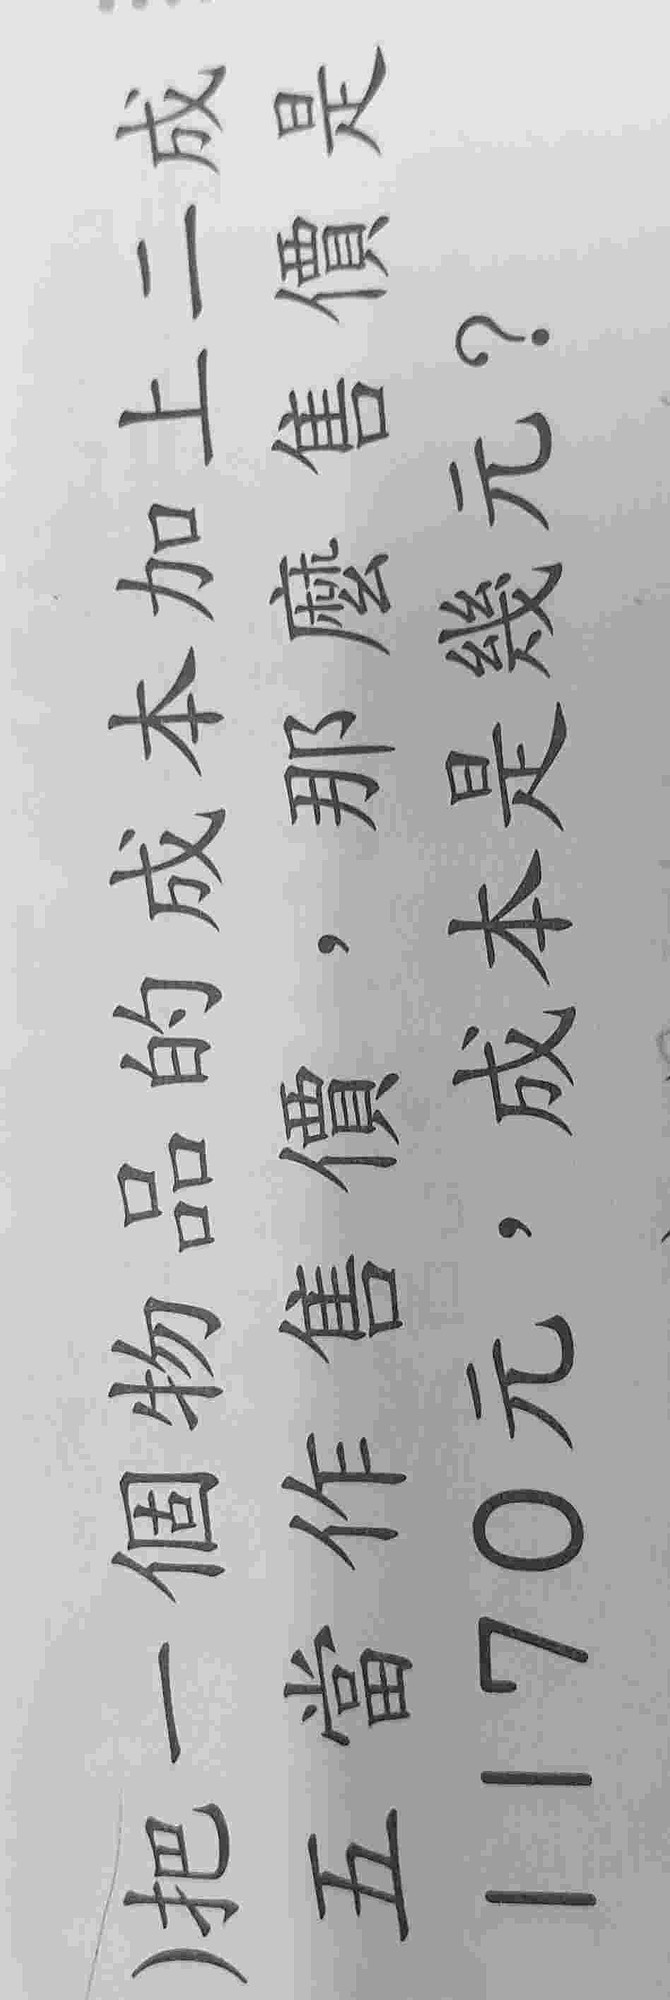 )把一個物品的成本加上二成
五當作售價，那麼售價是
1170元，成本是幾元？